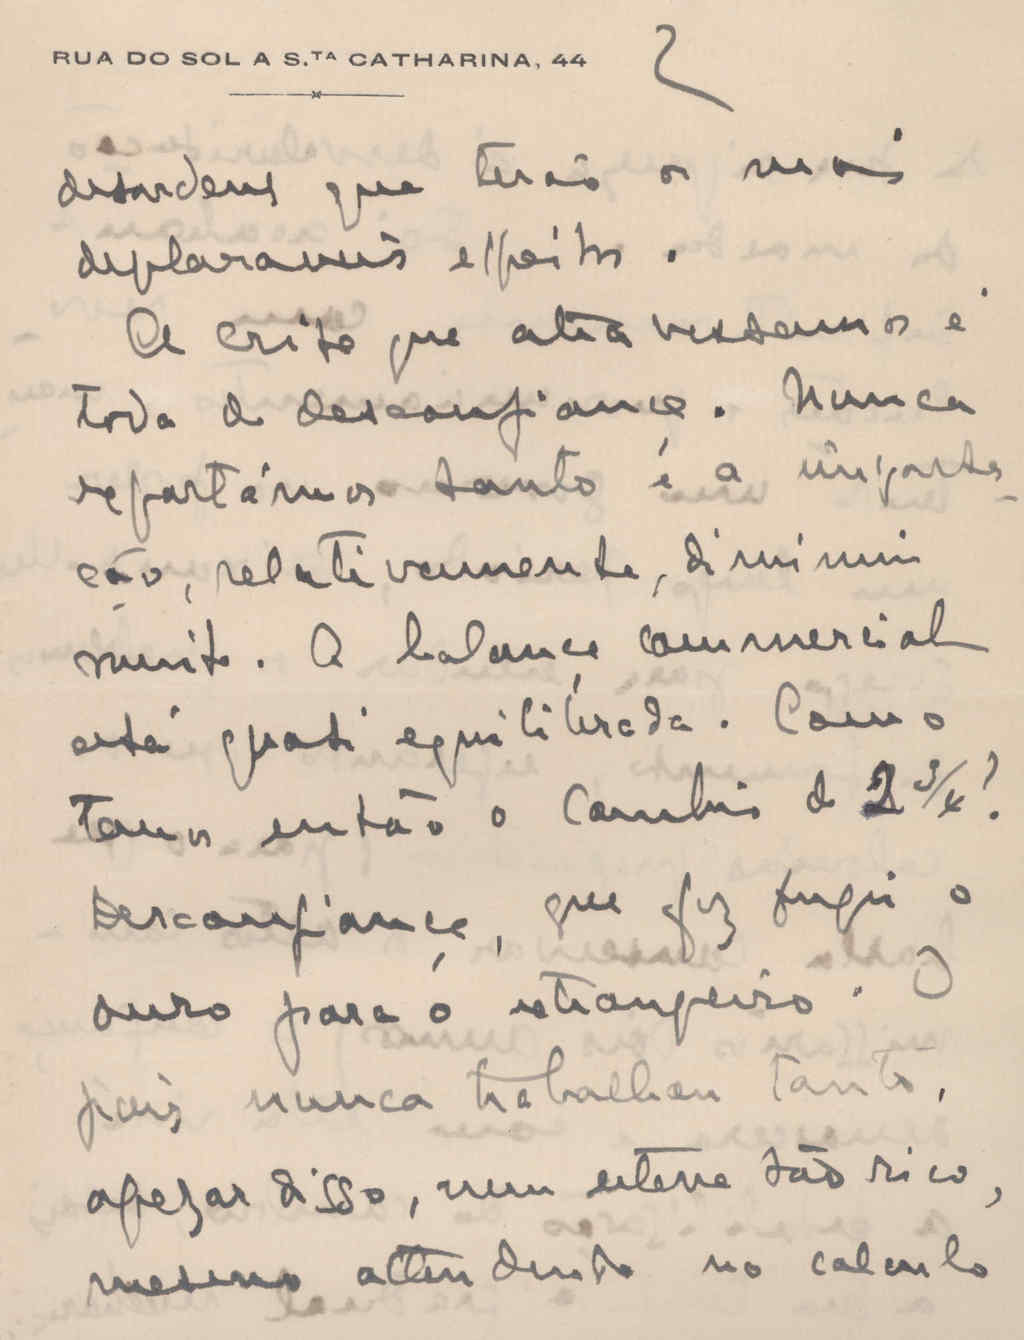 RUA DO SOL A S.TA CATHARINA, 44
2
desordens que terão os mais
deploraveis effeitos.
A crise que atravessamos é
toda de desconfiança. Nunca
exportámos tanto é a importa-
ção, relativamente, diminui
muito. A balança commercial
está quasi equilibrada. Como
temos então o cambio de 2 3/4?
Desconfiança, que fez fugir o
ouro para o estrangeiro. O
paiz nunca trabalhou tanto,
apezar disso, nem esteve tão rico,
mesmo attendendo no calculo